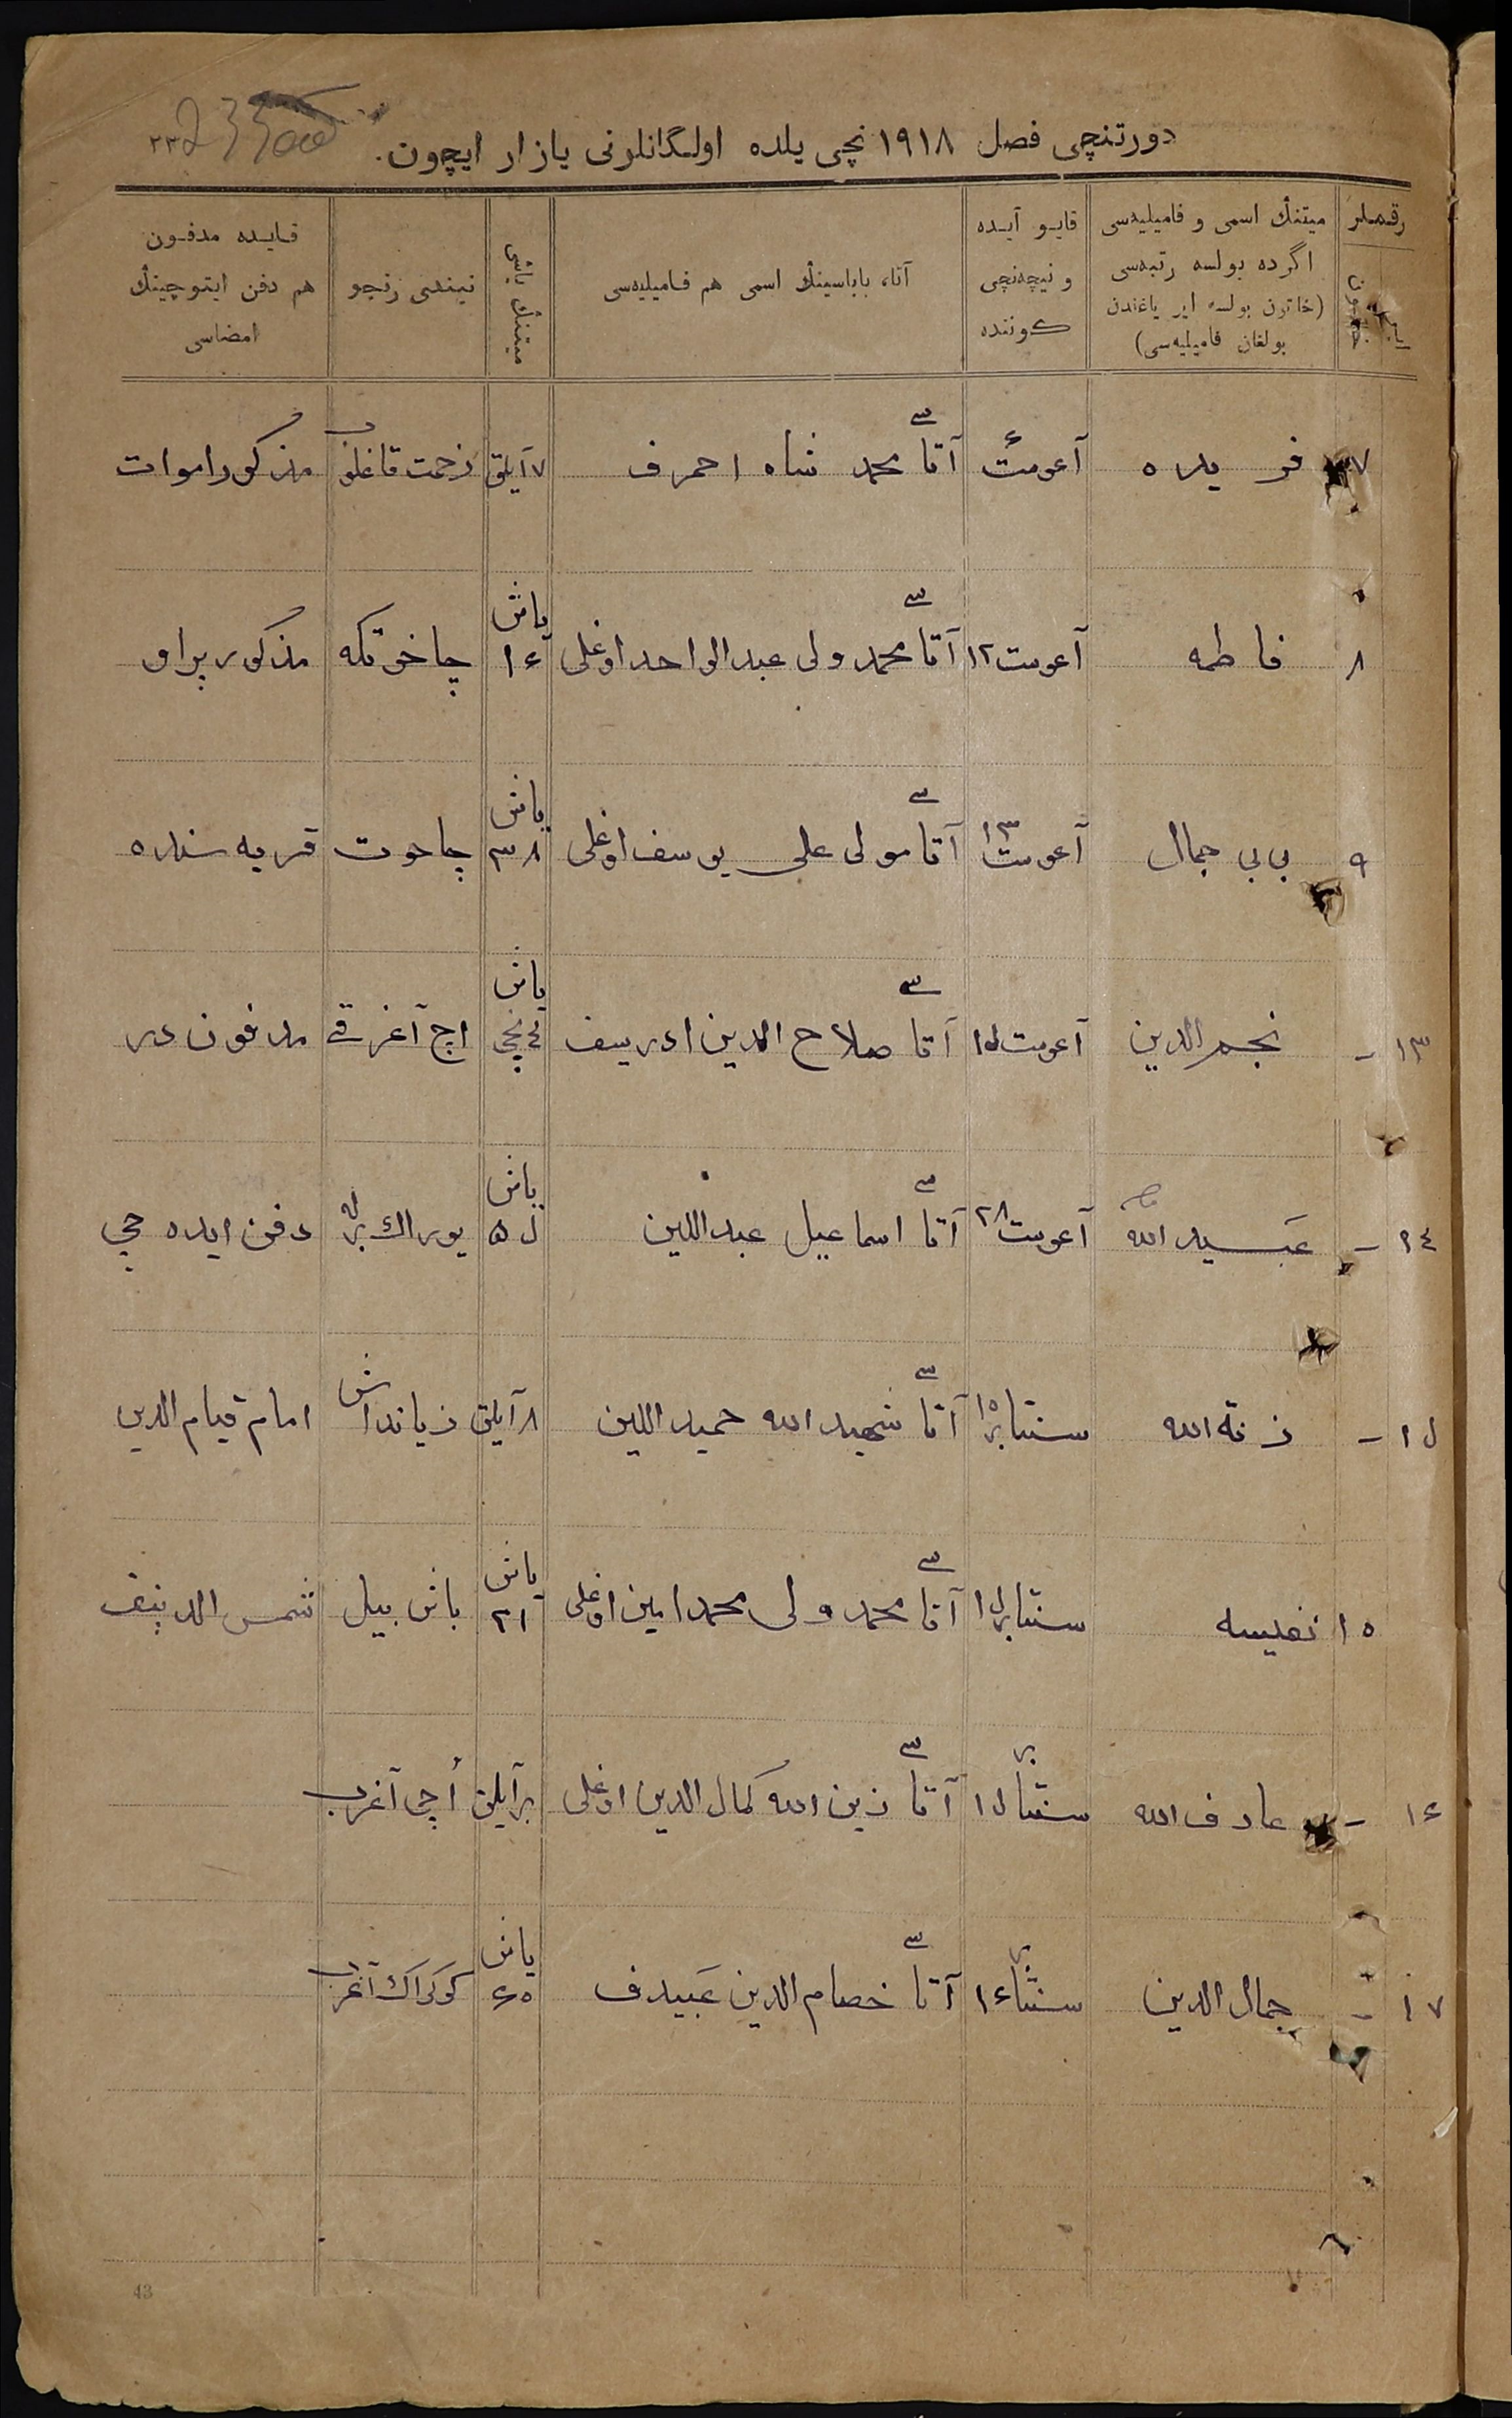 دورتنچی فصل ۱۹۱۸ نچی یلده اولگانلرنی یازار ایچون.
۲۳۲
رقملر
میتنڭ اسمی و فامیلیه‌سی اگرده بولسه رتبه‌سی (خاتون بولسه ایر یاغندن بولغان فامیلیه‌سی)
قایو آیده و نیچه‌نچی کوننده
آتا، باباسینڭ اسمی هم فامیلیه‌سی
میتنڭ یاشی
نیندی رنجو
قایده مدفون هم دفن ایتوچینڭ امضاسی
۷ فریده آعوست ۶ آتاسی محمد شاه احمرف ۷ آیلق زحمت قاغلو مذکور اموات
۸ فاطمه آعوست ۱۲ آتاسی محمد ولی عبدالواحد اوغلی ۱۶ یاش چاخوتکه مذکور براو
۹ بی بی جمال آعوست ۱۳ آتاسی مولی علی یوسف اوغلی ۳۸ یاش چاحوت قریه سنده
۱۳ - نجم الدین آعوست ۱۵ آتاسی صلاح الدین ادریسف یاش اچ آغرقی مدفون در
۱۴ - عبیدالله آعوست ۲۸ آتاسی اسماعیل عبداللین یاش یوراك برله دفن ایده چی
۱۵ - زنة الله سنتابر ۱۵ آتاسی شهیدالله حمیداللین ۸ آیلق زیانداش امام قیام الدین
۱۵ نفیسه سنتابر ۱۵ آتاسی محمد ولی محمد امین اوغلی ۲۱ یاش باش بیل شمس الدینف
۱۶ - عارف الله سنتابر ۱۵ آتاسی زین الله کمال الدین اوغلی بر آیلق اچی آغرب
۱۷ - جمال الدین سنتابر ۱۶ آتاسی خصام الدین عبیدف ۶۵ یاش کوکراك آغرب
43